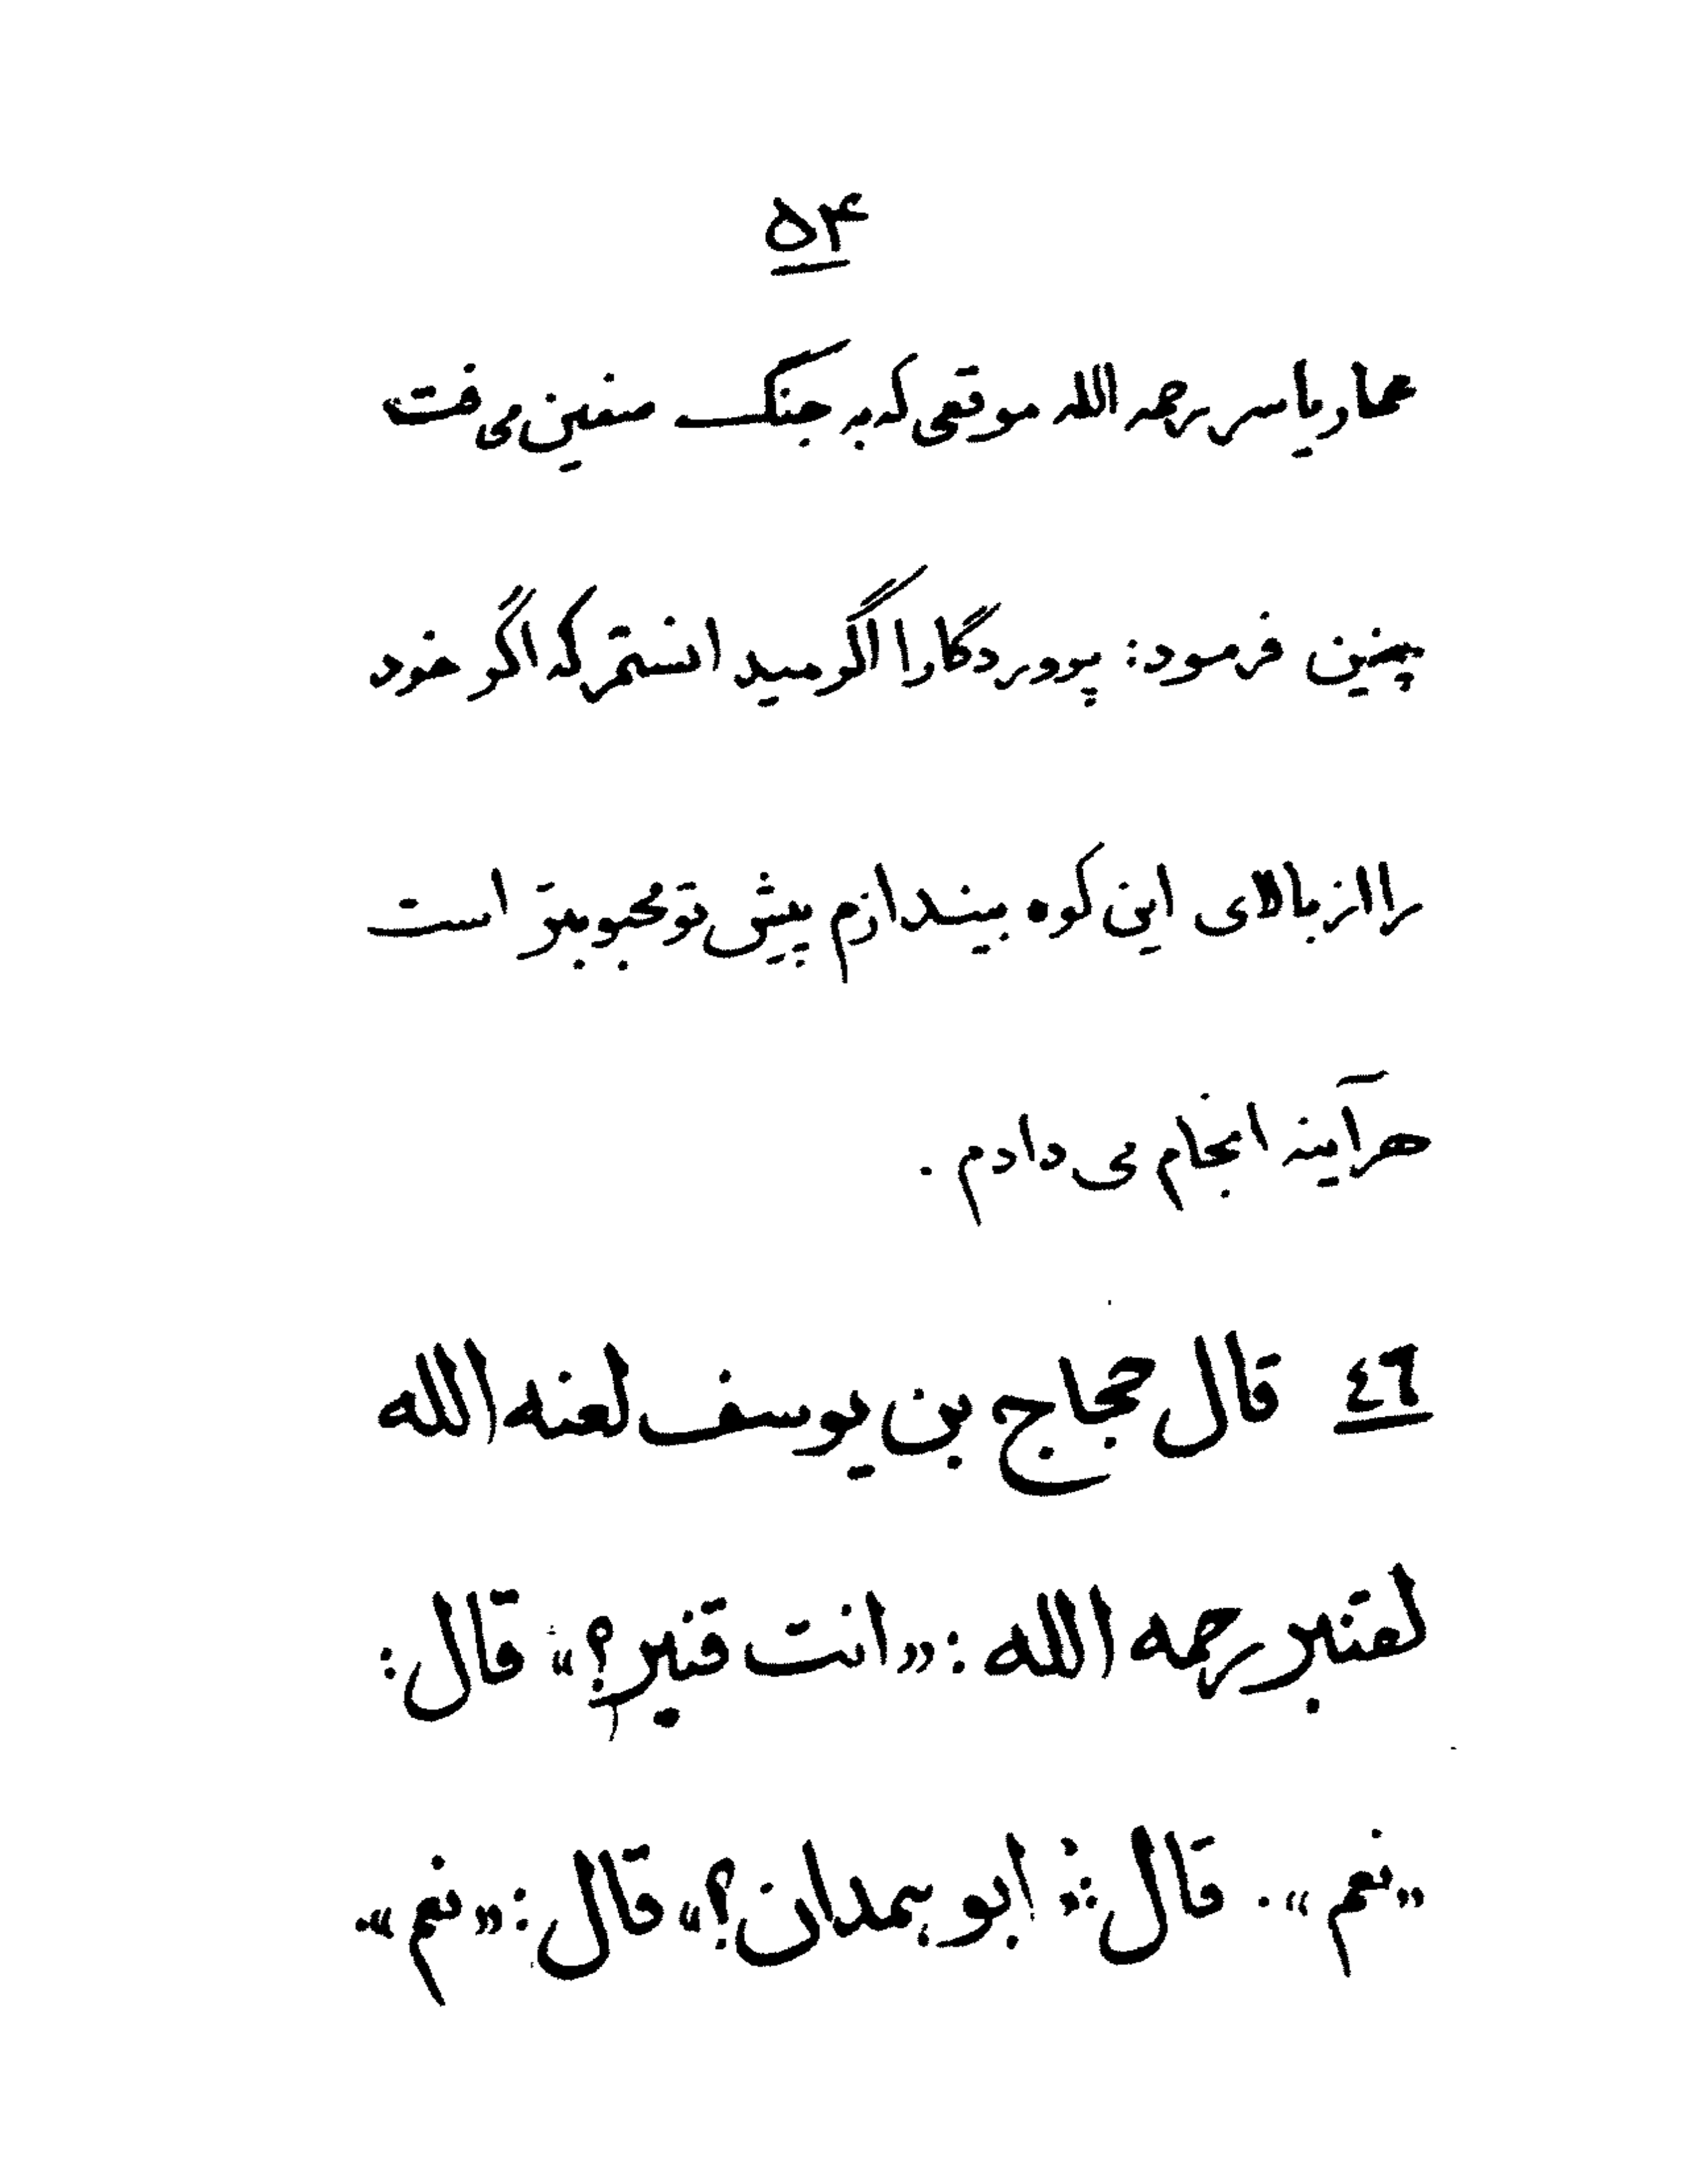 ۵۴
عمار یاسر رحمه الله موقعی که به جنگ صفین می رفت
چنین فرمود: پروردگارا اگر میدانستم که اگر خود
را از بالای این کوه بیندازم پیش تو محبوبتر است
هر آینه انجام می دادم .
٤٦ قال حجاج بن یوسف لعنه الله
لقنبر رحمه الله : «انت قنبر؟» قال :
«نعم» . قال : «ابو همدان؟» قال : «نعم».